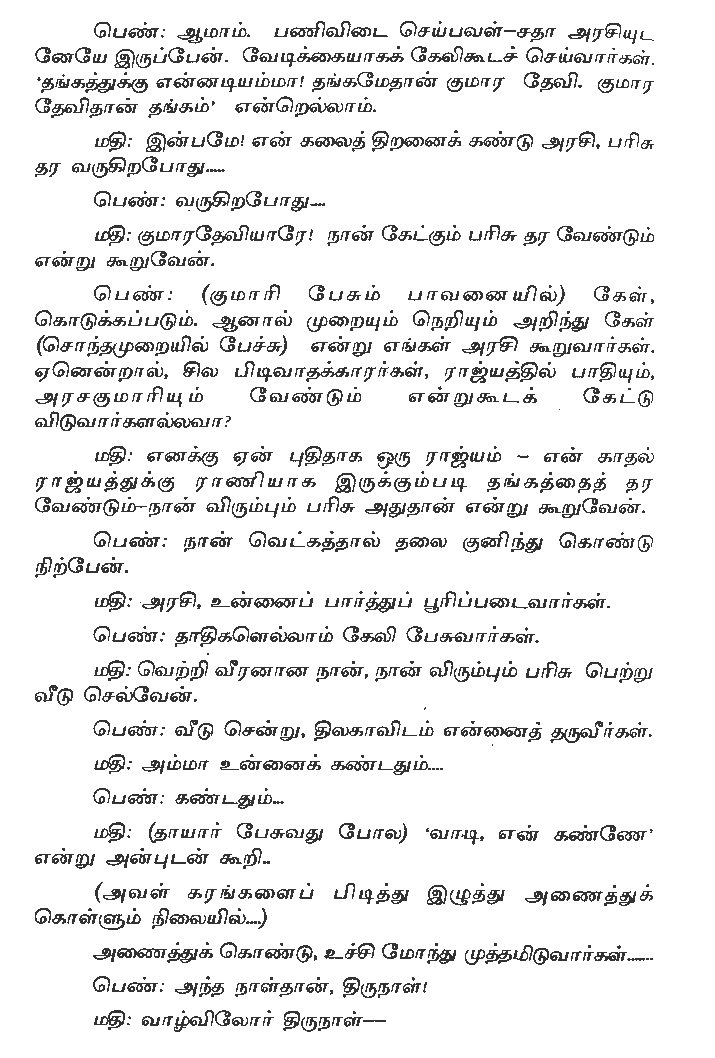 பெண்: ஆமாம். பணிவிடை செய்பவள்–சதா அரசியுட
னேயே இருப்பேன். வேடிக்கையாகக் கேலிகூடச் செய்வார்கள்.
‘தங்கத்துக்கு என்னடியம்மா! தங்கமேதான் குமார தேவி. குமார
தேவிதான் தங்கம்’ என்றெல்லாம்.
மதி: இன்பமே! என் கலைத் திறனைக் கண்டு அரசி, பரிசு
தர வருகிறபோது.....
பெண்: வருகிறபோது....
மதி: குமாரதேவியாரே! நான் கேட்கும் பரிசு தர வேண்டும்
என்று கூறுவேன்.
பெண்: (குமாரி பேசும் பாவனையில்) கேள்,
கொடுக்கப்படும். ஆனால் முறையும் நெறியும் அறிந்து கேள்
(சொந்தமுறையில் பேச்சு) என்று எங்கள் அரசி கூறுவார்கள்.
ஏனென்றால், சில பிடிவாதக்காரர்கள், ராஜ்யத்தில் பாதியும்,
அரசகுமாரியும் வேண்டும் என்றுகூடக் கேட்டு
விடுவார்களல்லவா?
மதி: எனக்கு ஏன் புதிதாக ஒரு ராஜ்யம் – என் காதல்
ராஜ்யத்துக்கு ராணியாக இருக்கும்படி தங்கத்தைத் தர
வேண்டும்–நான் விரும்பும் பரிசு அதுதான் என்று கூறுவேன்.
பெண்: நான் வெட்கத்தால் தலை குனிந்து கொண்டு
நிற்பேன்.
மதி: அரசி, உன்னைப் பார்த்துப் பூரிப்படைவார்கள்.
பெண்: தாதிகளெல்லாம் கேலி பேசுவார்கள்.
மதி: வெற்றி வீரனான நான், நான் விரும்பும் பரிசு பெற்று
வீடு செல்வேன்.
பெண்: வீடு சென்று, திலகாவிடம் என்னைத் தருவீர்கள்.
மதி: அம்மா உன்னைக் கண்டதும்....
பெண்: கண்டதும்...
மதி: (தாயார் பேசுவது போல) ‘வாடி, என் கண்ணே’
என்று அன்புடன் கூறி..
(அவள் கரங்களைப் பிடித்து இழுத்து அணைத்துக்
கொள்ளும் நிலையில்....)
அணைத்துக் கொண்டு, உச்சி மோந்து முத்தமிடுவார்கள்.......
பெண்: அந்த நாள்தான், திருநாள்!
மதி: வாழ்விலோர் திருநாள்––